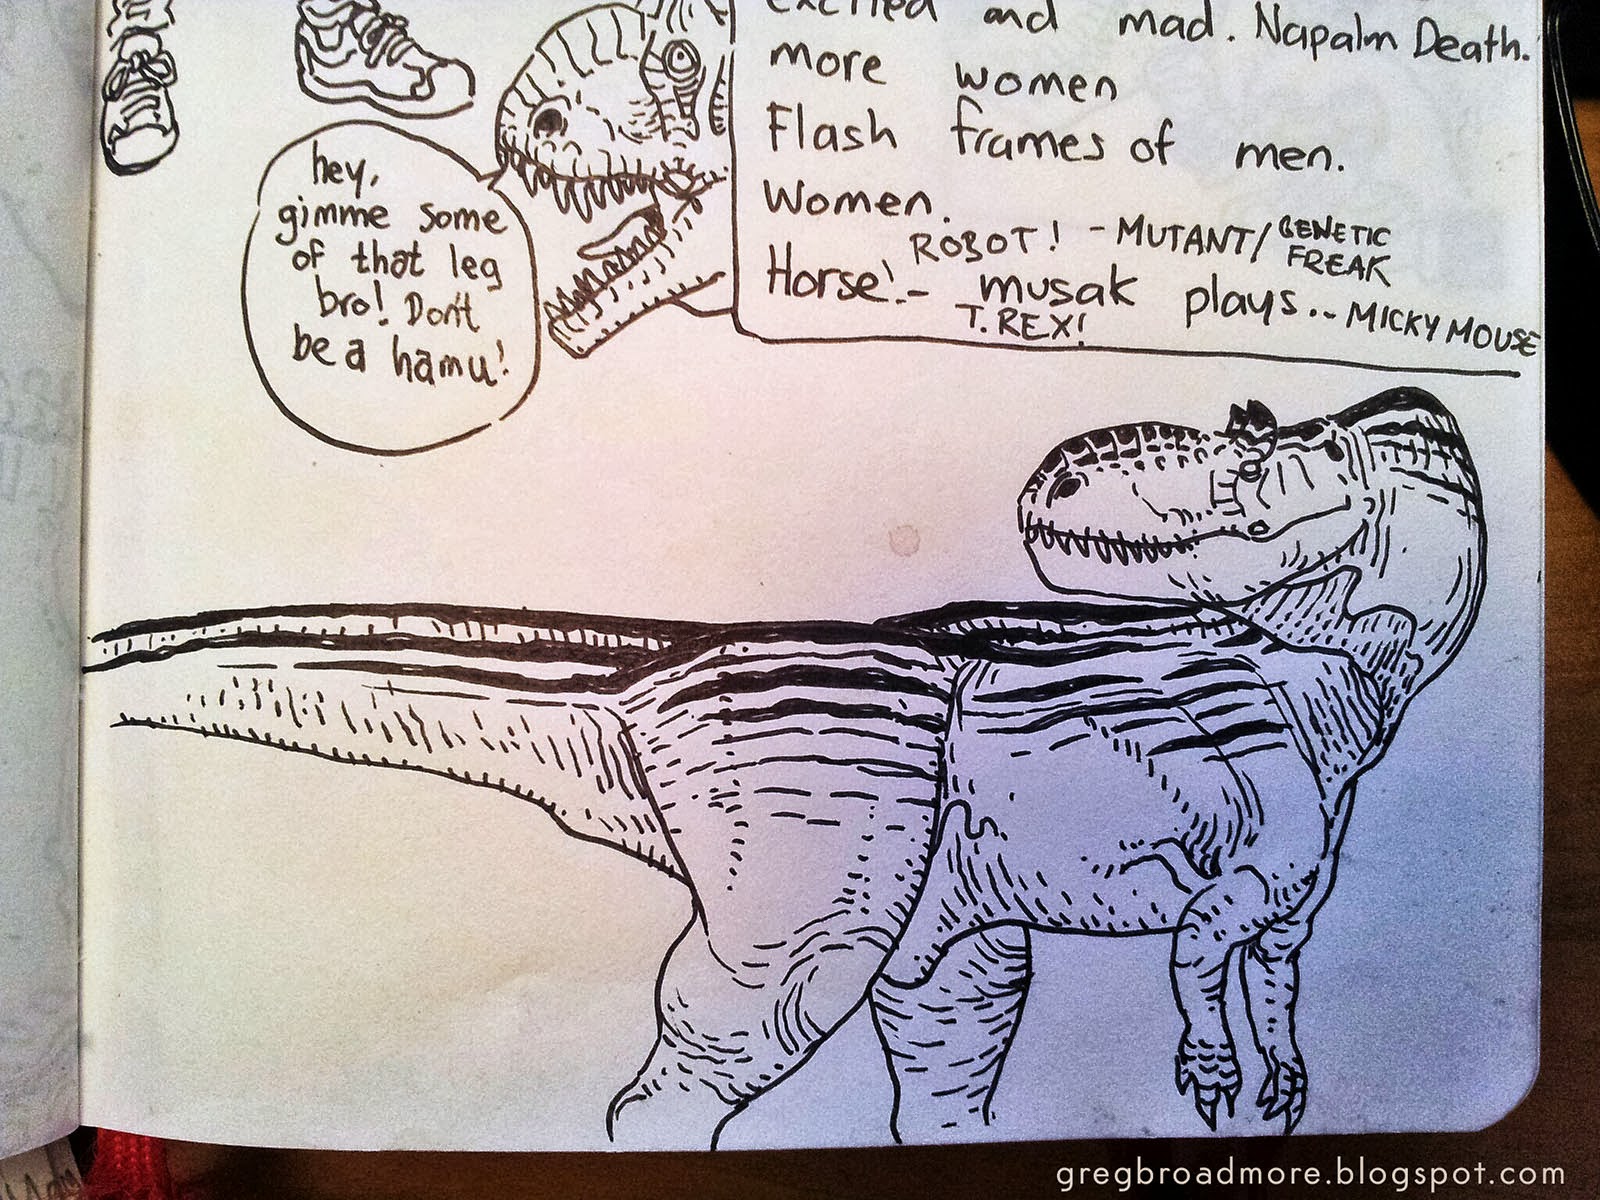 excited and mad. Napalm Death.
more women
Flash frames of men.
Women.
ROBOT! - MUTANT/ GENETIC
FREAK
Horse! - musak plays.. - MICKY MOUSE
T. REX!
hey,
gimme some
of that leg
bro! Don't
be a hamu!
gregbroadmore.blogspot.com